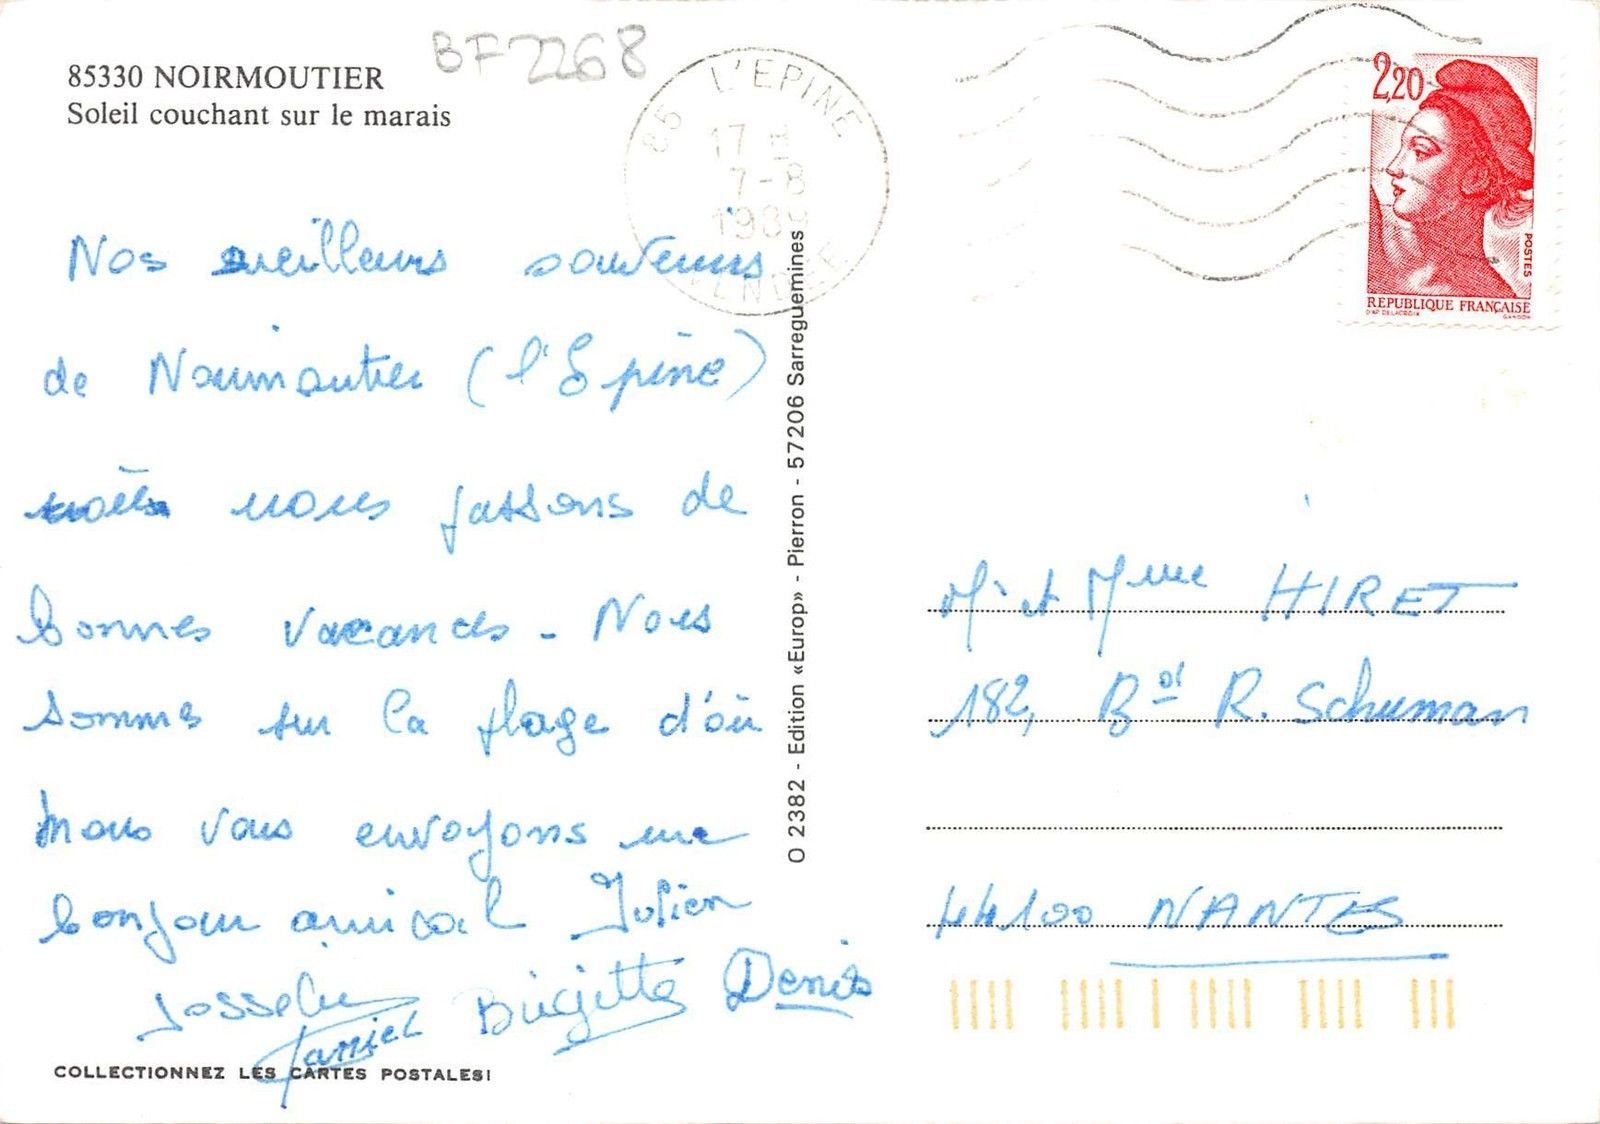 85330 NOIRMOUTIER
Soleil couchant sur le marais
BF2268
85 L'EPINE
17 H
7-8
1989
VENDEE
2,20
POSTES
REPUBLIQUE FRANÇAISE
D'AP. DELACROIX
GANDON
Nos meilleurs souvenirs
de Noirmoutier (l'Epine)
nous passons de
bonnes vacances - Nous
sommes sur la plage d'où
nous vous envoyons un
bonjour amical Julien
Josselin Daniel Brigitte Denis
COLLECTIONNEZ LES CARTES POSTALES!
O 2382 - Edition «Europ» - Pierron - 57206 Sarreguemines
Mr et Mme HIRET
182, Bd R. Schuman
44100 NANTES